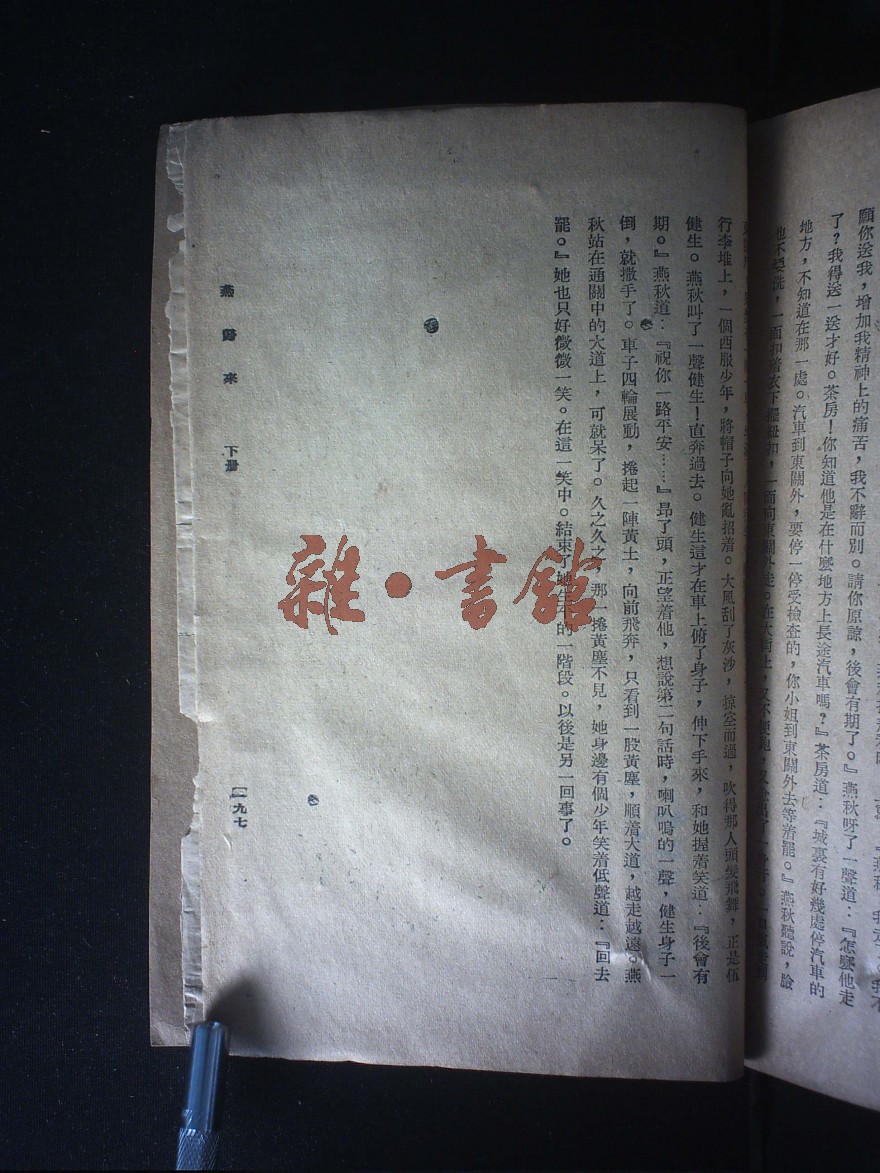 願你送我，增加我精神上的痛苦，我不辭而別。請你原諒，後會有期了。』燕秋呀了一聲道：『怎麼他走
了？我得送一送才好。茶房！你知道他是在什麼地方上長途汽車嗎？』茶房道：『城裏有好幾處停汽車的
地方，不知道在那一處。汽車到東關外，要停一停受檢查的，你小姐到東關外去等着罷。』燕秋聽說，臉
也不要洗，一面扣着衣下擺紐扣，一面向東關外走。在大街上，又不便跑，
行李堆上，一個西服少年，將帽子向她亂招着。大風刮了灰沙，掠空而過，吹得那人頭髮飛舞，正是伍
健生。燕秋叫了一聲健生！直奔過去。健生這才在車上俯了身子，伸下手來，和她握着笑道：『後會有
期。』燕秋道：『祝你一路平安……』昂了頭，正望着他，想說第二句話時，喇叭嗚的一聲，健生身子一
倒，就撒手了。車子四輪展動，捲起一陣黃土，向前飛奔，只看到一股黃塵，順着大道，越走越遠。燕
秋站在通關中的大道上，可就呆了。久之久之，那一捲黃塵不見，她身邊有個少年笑着低聲道：『回去
罷。』她也只好微微一笑。在這一笑中。結束了她生的一階段。以後是另一回事了。
燕歸來 下册
一九七
雜·書館